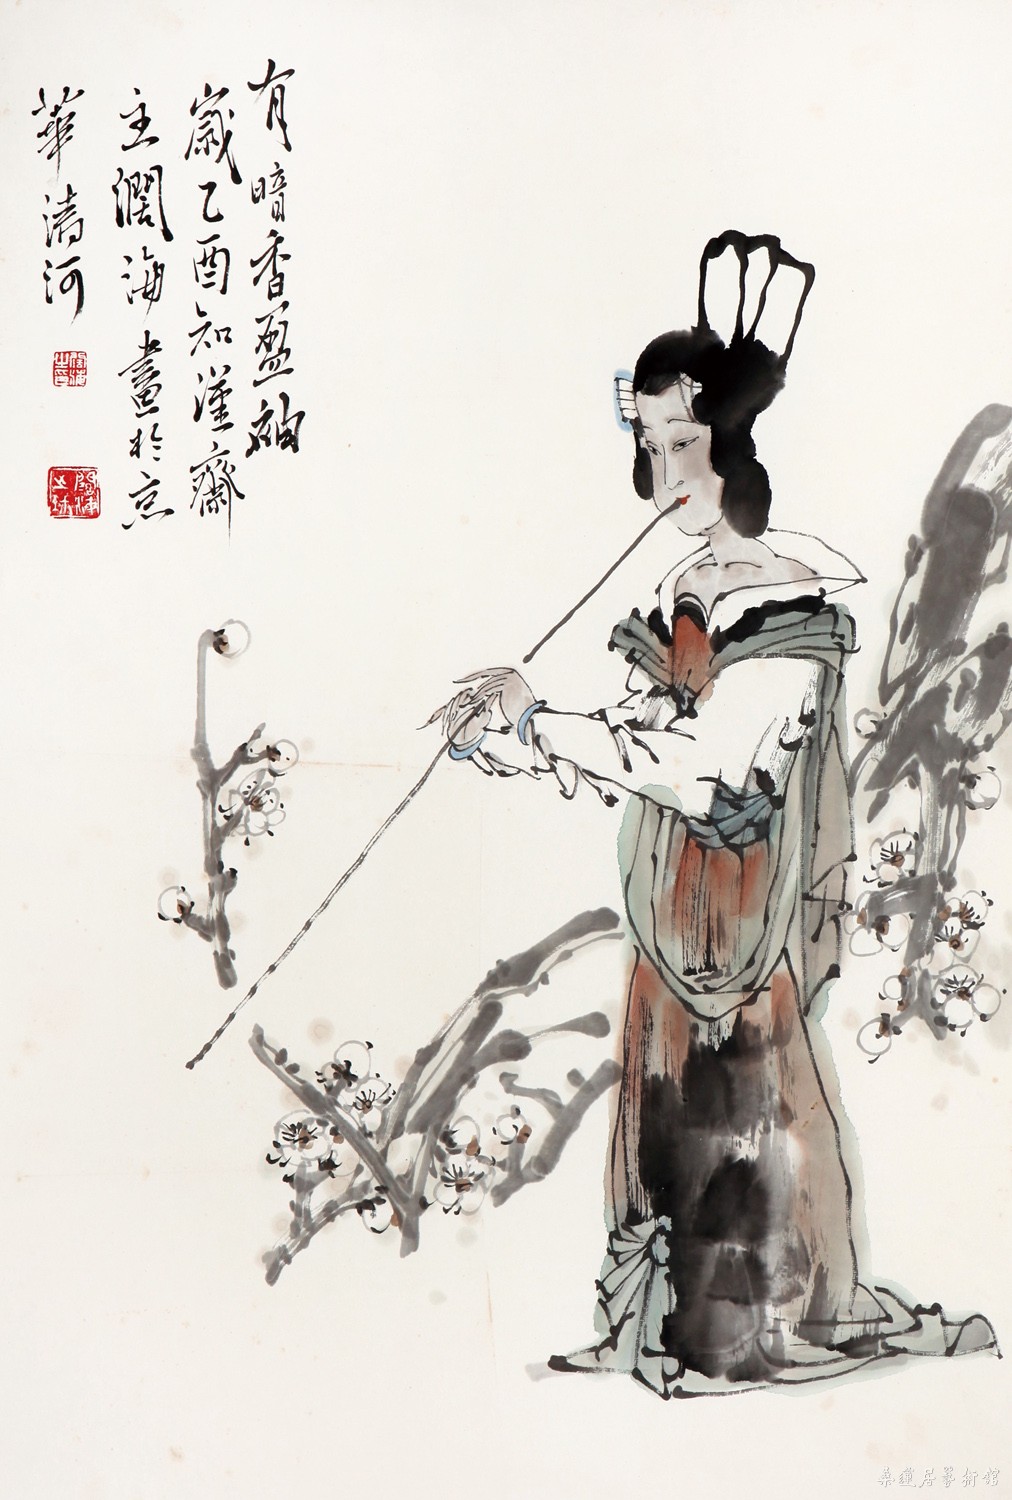 有暗香盈袖
歲乙酉知漢齋
主濶海畫於京
華清河
桑蓮居藝術館